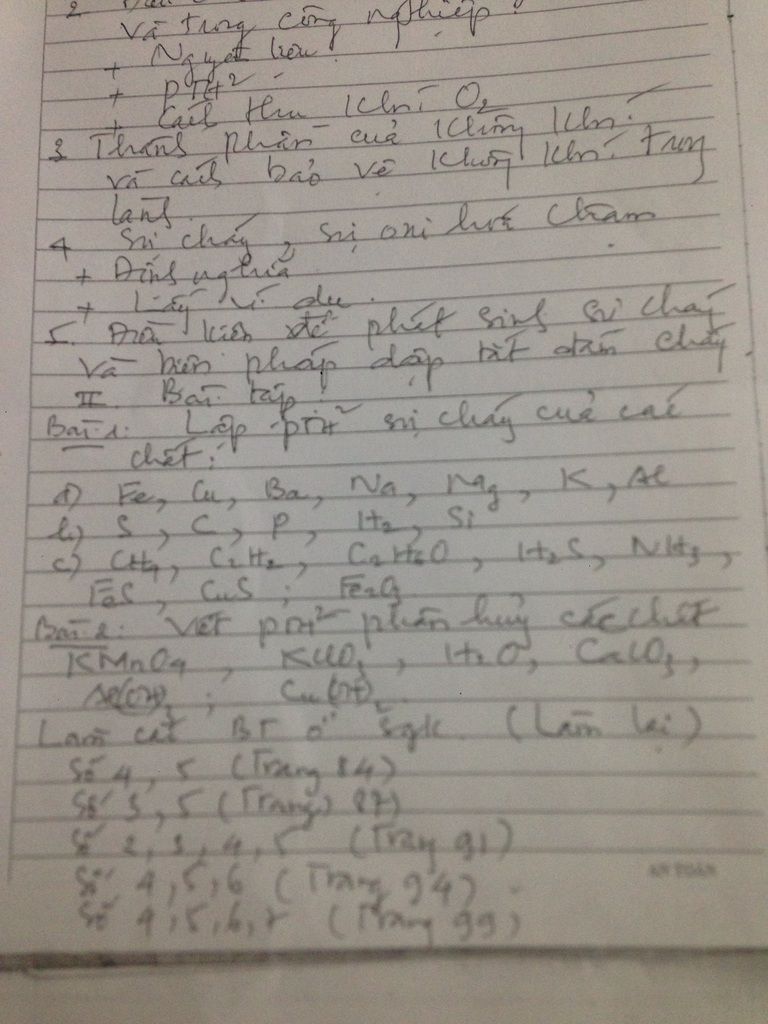 2
và trong công nghiệp?
+ Nguyên liệu
+ PTH²
+ Cách thu khí O₂
3 Thành phần của không khí
và cách bảo vệ không khí trong
lành.
4 Sự cháy, sự oxi hoá chậm
+ Định nghĩa
+ Lấy ví dụ.
5. Điều kiện để phát sinh sự cháy
và biện pháp dập tắt đám cháy.
II Bài tập:
Bài 1: Lập PTH² sự cháy của các
chất:
a) Fe, Cu, Ba, Na, Mg, K, Al
b) S, C, P, H₂, Si
c) CH₄, C₂H₂, C₂H₆O, H₂S, NH₃,
FeS, CuS;
Bài 2: Viết PTH² phân huỷ các chất
KMnO₄, KClO₃, H₂O, CaCO₃,
Al(OH)₃; Cu(OH)₂
Làm các BT ở sgk. (Làm lại)
Số 4, 5 (Trang 84)
Số 3, 5 (Trang 87)
Số 2, 3, 4, 5 (Trang 91)
Số 4, 5, 6 (Trang 94)
Số 4, 5, 6, 7 (Trang 99)